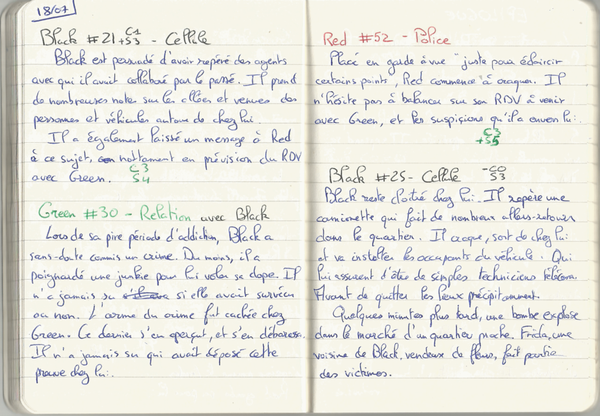 18/07
Black #21 +S3 C1 - Cellule
Black est persuadé d'avoir repéré des agents
avec qui il avait collaboré par le passé. Il prend
de nombreuses notes sur les allées et venues des
personnes et véhicules autour de chez lui.
Il a également laissé un message à Red
à ce sujet, notamment en prévision du RDV
avec Green. C3 S4
Green #30 - Relation avec Black
Lors de sa pire période d'addiction, Black a
sans-doute commis un crime. Du moins, il a
poignardé une junkie pour lui voler sa dope. Il
n'a jamais su si elle avait survécu
ou non. L'arme du crime fut cachée chez
Green. Ce dernier s'en aperçut, et s'en débarassa.
Il n'a jamais su qui avait déposé cette
preuve chez lui.
Red #52 - Police
Placé en garde à vue "juste pour éclaircir
certains points", Red commence à craquer. Il
n'hésite pas à balancer sur son RDV à venir
avec Green, et les suspicions qu'il a envers lui.
C3
+S5
Black #25 - Cellule -C0 S3
Black reste cloîtré chez lui. Il repère une
camionette qui fait de nombreux allers-retours
dans le quartier. Il craque, sort de chez lui
et va insulter les occupants du véhicule. Qui
lui assurent d'être de simples techniciens télécom.
Avant de quitter les lieux précipitamment.
Quelques minutes plus tard, une bombe explose
dans le marché d'un quartier proche. Frida, une
voisine de Black, vendeuse de fleurs, fait partie
des victimes.